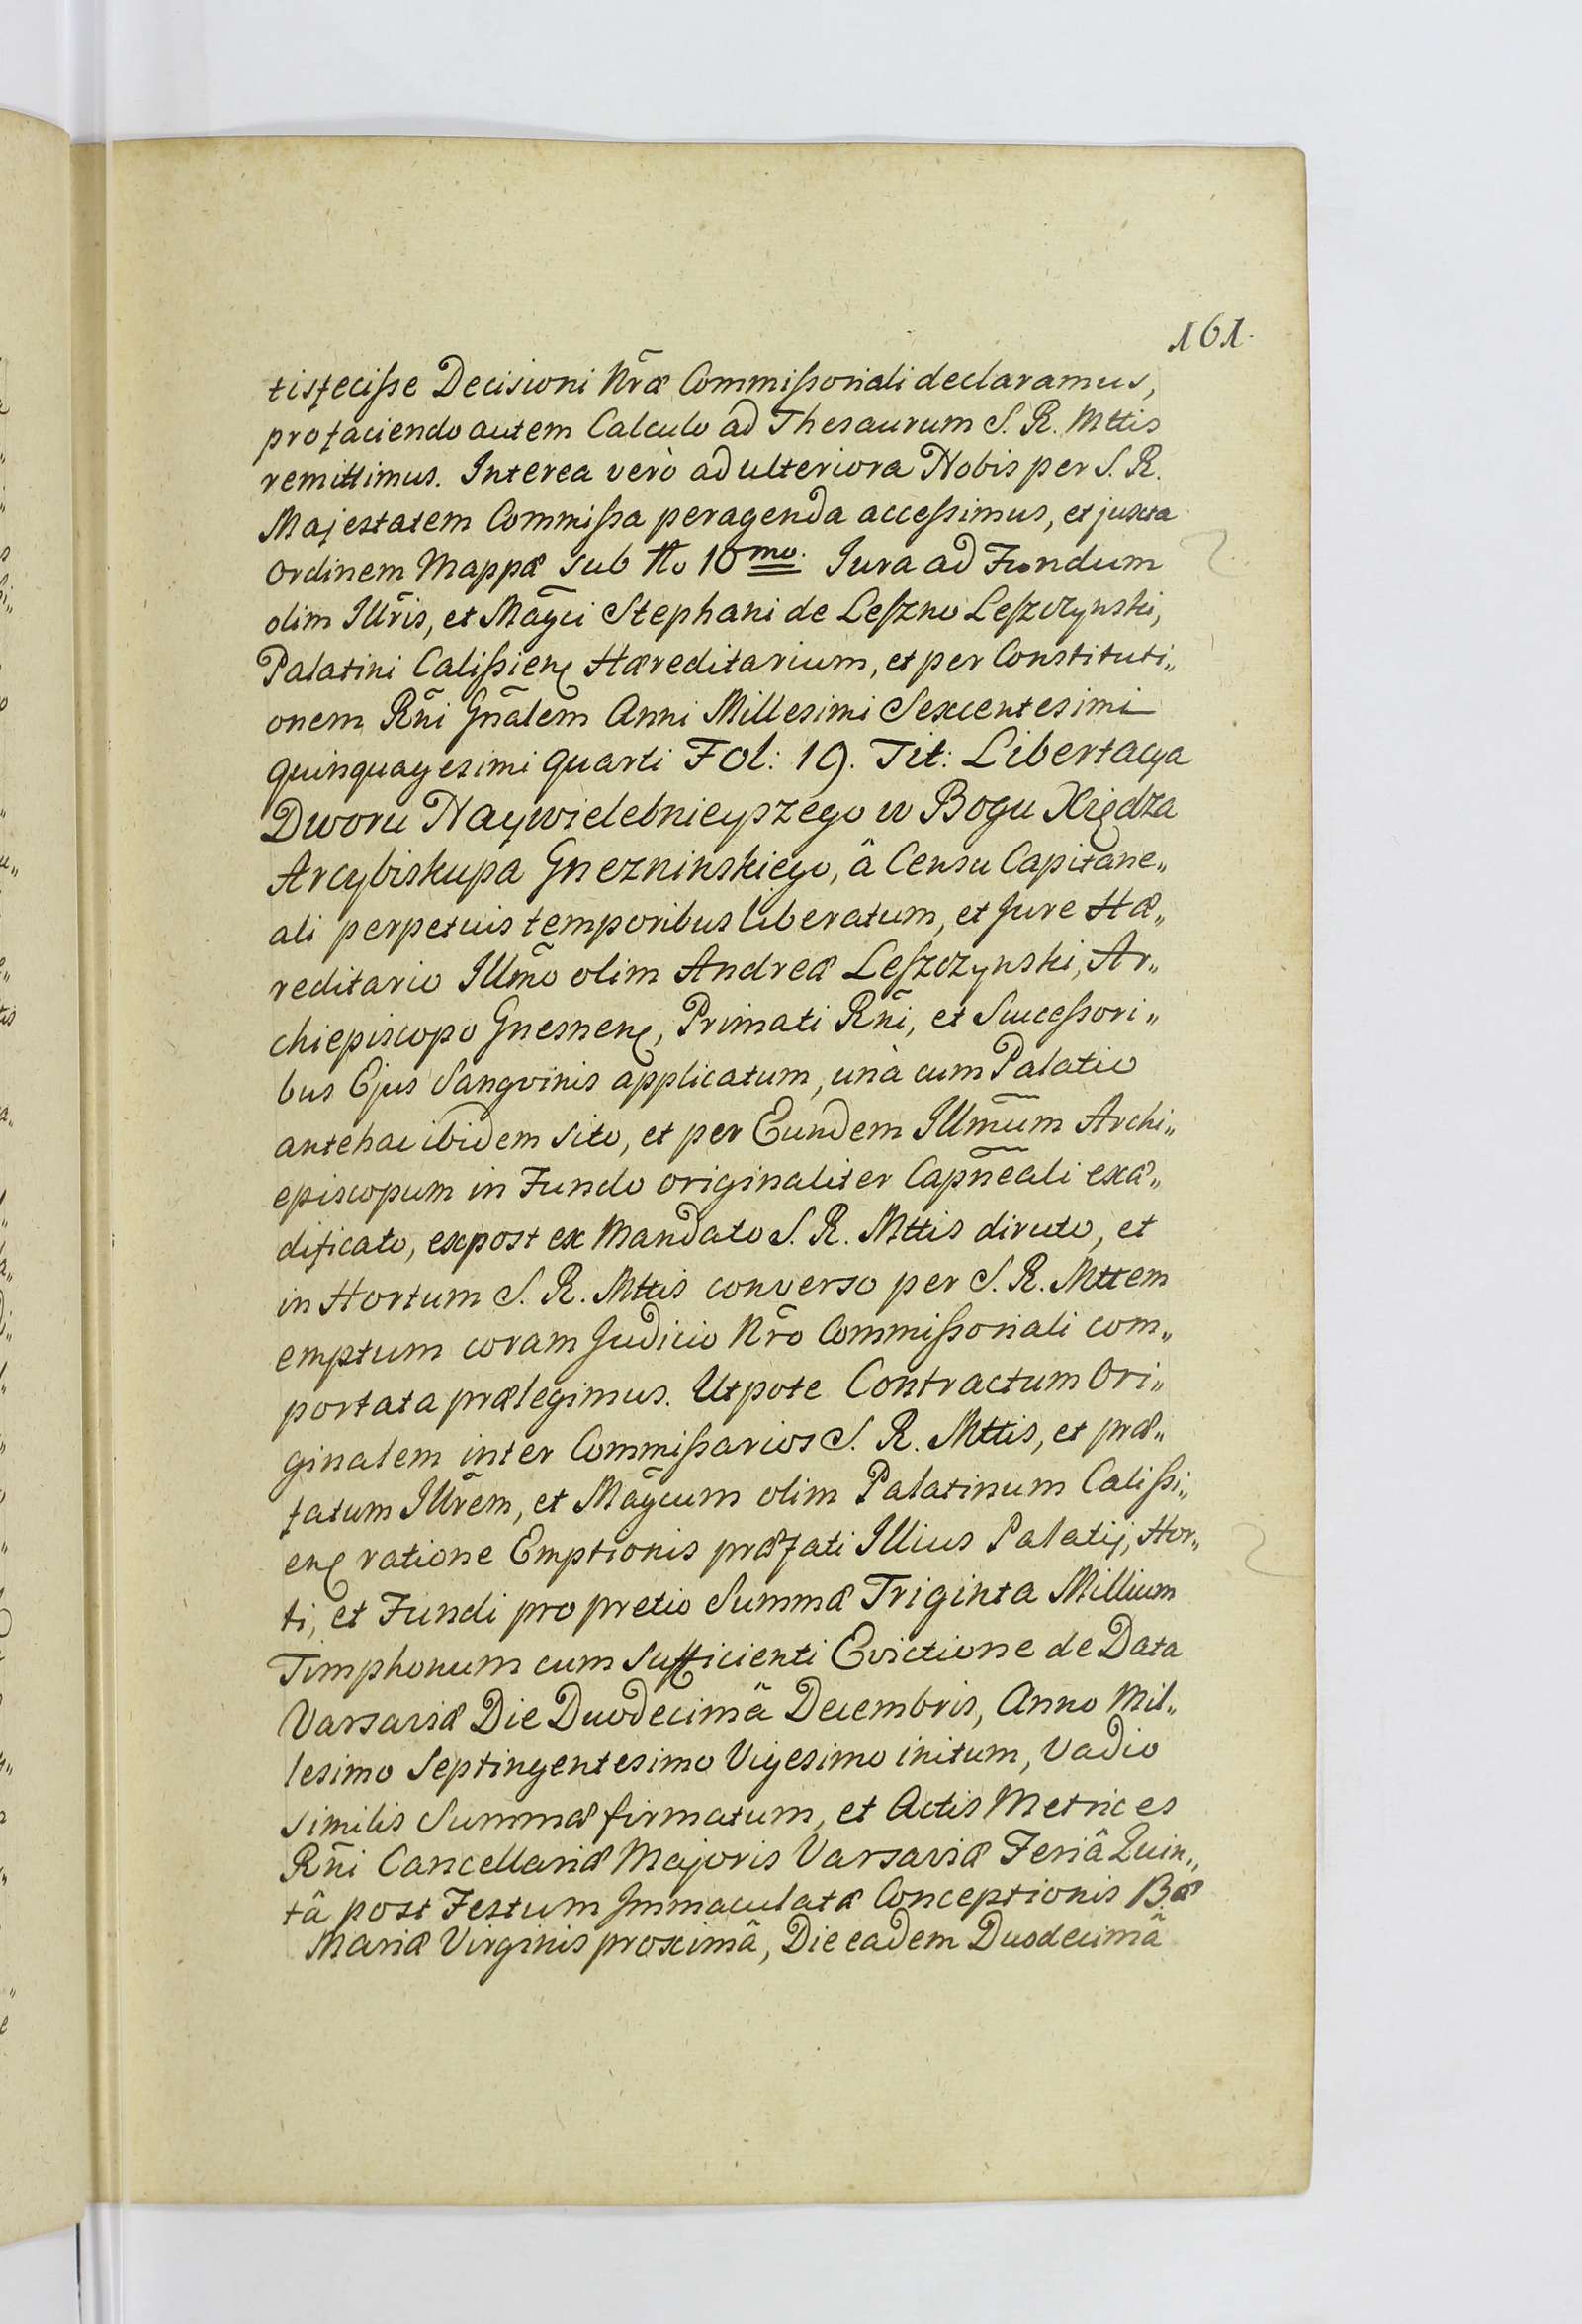 161.
tisfecisse Decisioni Nr̃æ Commissoriali declaramus,
pro faciendo autem Calculo ad Thesaurum S. R. Mttis
remittimus. Interea verò ad ulteriora Nobis per S. R.
Majestatem Commissa peragenda accessimus, et juxta
Ordinem Mappæ sub No 10mo. Jura ad Fundum
olim Illr̃is, et Mag̃ci Stephani de Leszno Leszczynski,
Palatini Calissieñ Hæreditarium, et per Constituti„
onem Rñi Gñalem Anni Millesimi Sexcentesimi
quinquagesimi quarti Fol: 19. Tit: Libertacya
Dworu Naywielebnieyszego w Bogu Xiędza
Arcybiskupa Gnezninskiego, â Censu Capitane„
ali perpetuis temporibus liberatum, et Jure Hæ„
reditario Illm̃o olim Andreæ Leszczynski, Ar„
chiepiscopo Gnesneñ, Primati Rñi, et Successori„
bus Ejus Sangvinis applicatum, unà cum Palatio
antehac ibidem sito, et per Eundem Illm̃um Archi„
episcopum in Fundo originaliter Capñeali exæ„
dificato, expost ex Mandato S. R. Mttis diruto, et
in Hortum S. R. Mttis converso per S. R. Mttem
emptum coram Judicio Nr̃o Commissoriali com„
portata prælegimus. Utpote Contractum Ori„
ginalem inter Commissarios S. R. Mttis, et præ„
fatum Illr̃em, et Mag̃cum olim Palatinum Calissi„
eñ ratione Emptionis præfati Illius Palatij, Hor„
ti, et Fundi pro pretio Summæ Triginta Millium
Timphonum cum sufficienti Evictione de Data
Varsaviæ Die Duodecimâ Decembris, Anno Mil„
lesimo Septingentesimo Vigesimo initum, Vadio
similis Summæ firmatum, et Actis Metrices
Rñi Cancellariæ Majoris Varsaviæ Feriâ Quin„
tâ post Festum Immaculatæ Conceptionis B.æ
Mariæ Virginis proximâ, Die eadem Duodecimâ